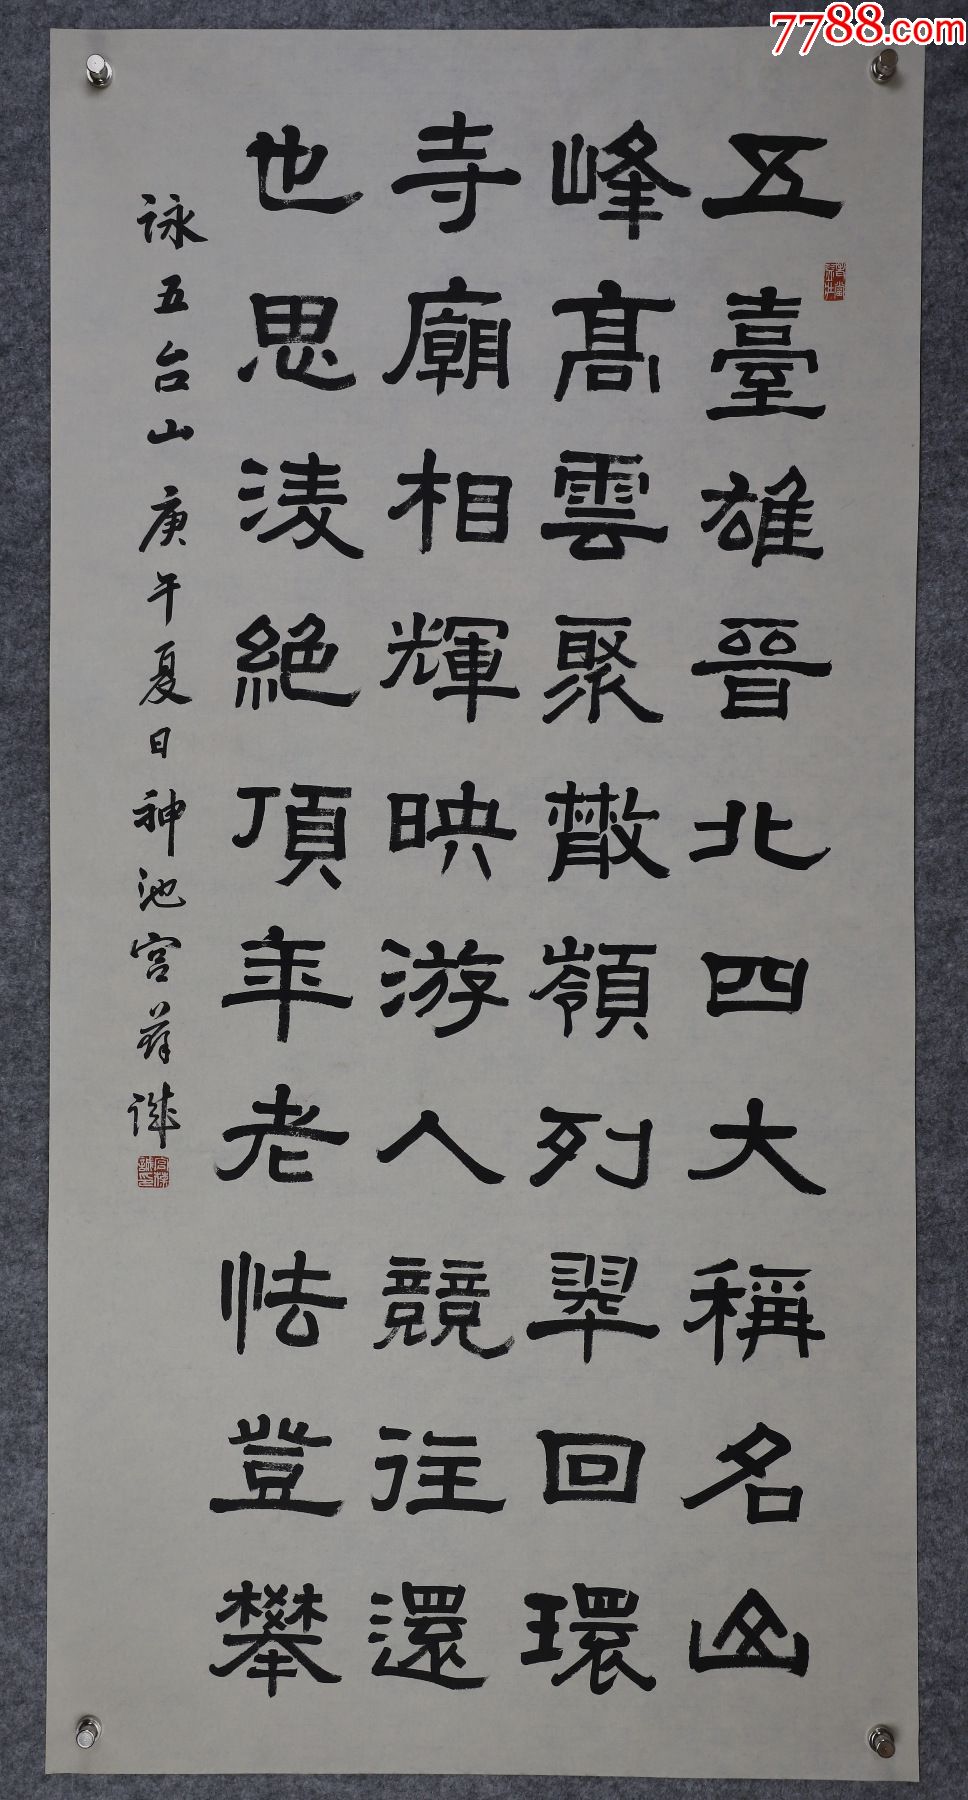 7788.com
五臺雄晉北四大稱名山
峰高雲聚散嶺列翠回環
寺廟相輝映游人競往還
也思淩絕頂年老怯登攀
詠五台山庚午夏日神池宫葆诚